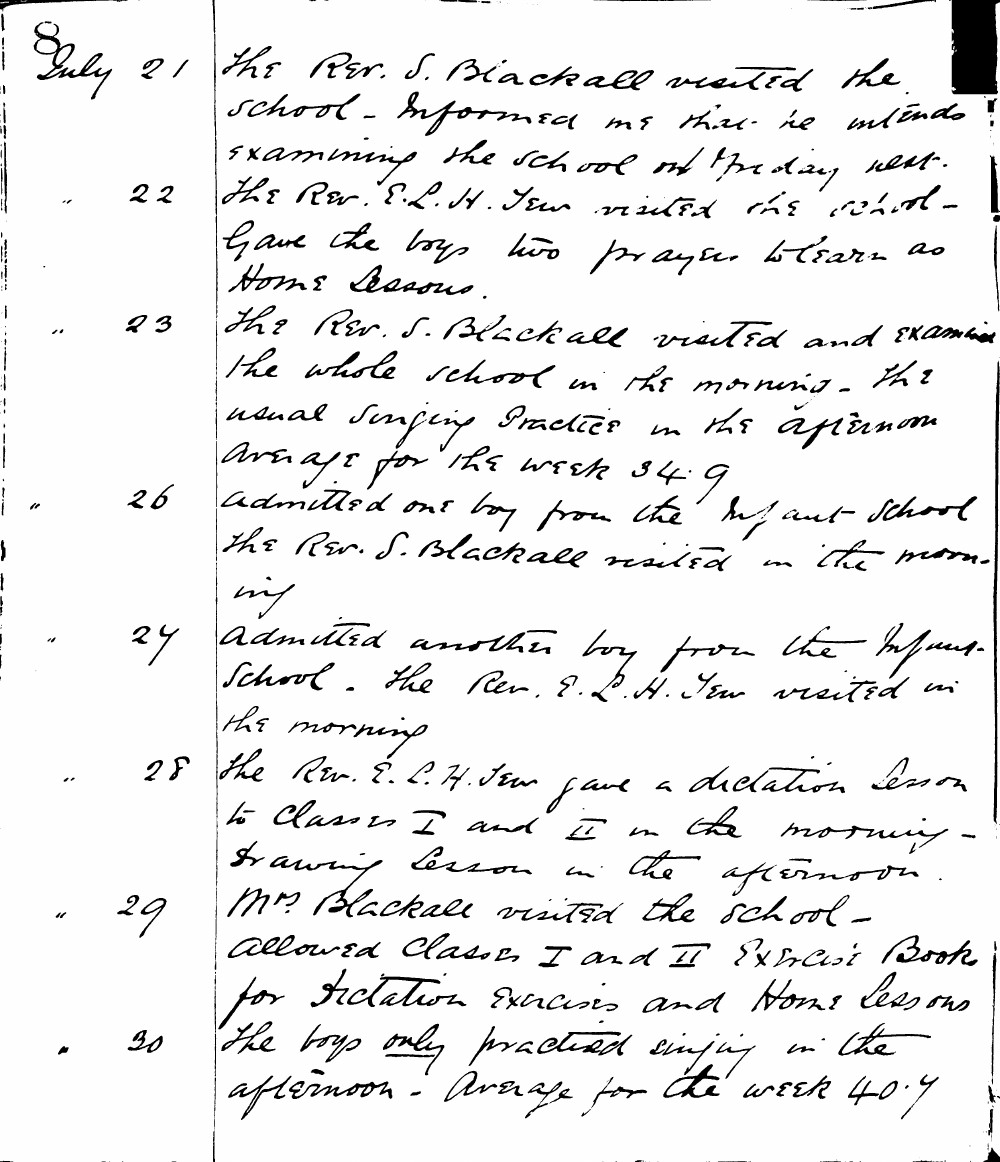 8
July 21 The Rev. S. Blackall visited the
school - Informed me that he intends
examining the school on Friday next.
" 22 The Rev. E. L. H. Tew visited the school -
Gave the boys two prayers to learn as
Home Lessons.
" 23 The Rev. S. Blackall visited and examined
the whole school in the morning - The
usual Singing Practice in the afternoon
Average for the week 34.9
" 26 Admitted one boy from the Infant School
The Rev. S. Blackall visited in the morn-
ing
" 27 Admitted another boy from the Infant
School - The Rev. E. L. H. Tew visited in
the morning
" 28 The Rev. E. L. H. Tew gave a dictation Lesson
to Classes I and II in the morning -
Drawing Lesson in the afternoon.
" 29 Mrs. Blackall visited the School -
Allowed Classes I and II Exercise Books
for Dictation Exercises and Home Lessons
" 30 The boys only practised singing in the
afternoon - Average for the week 40.7